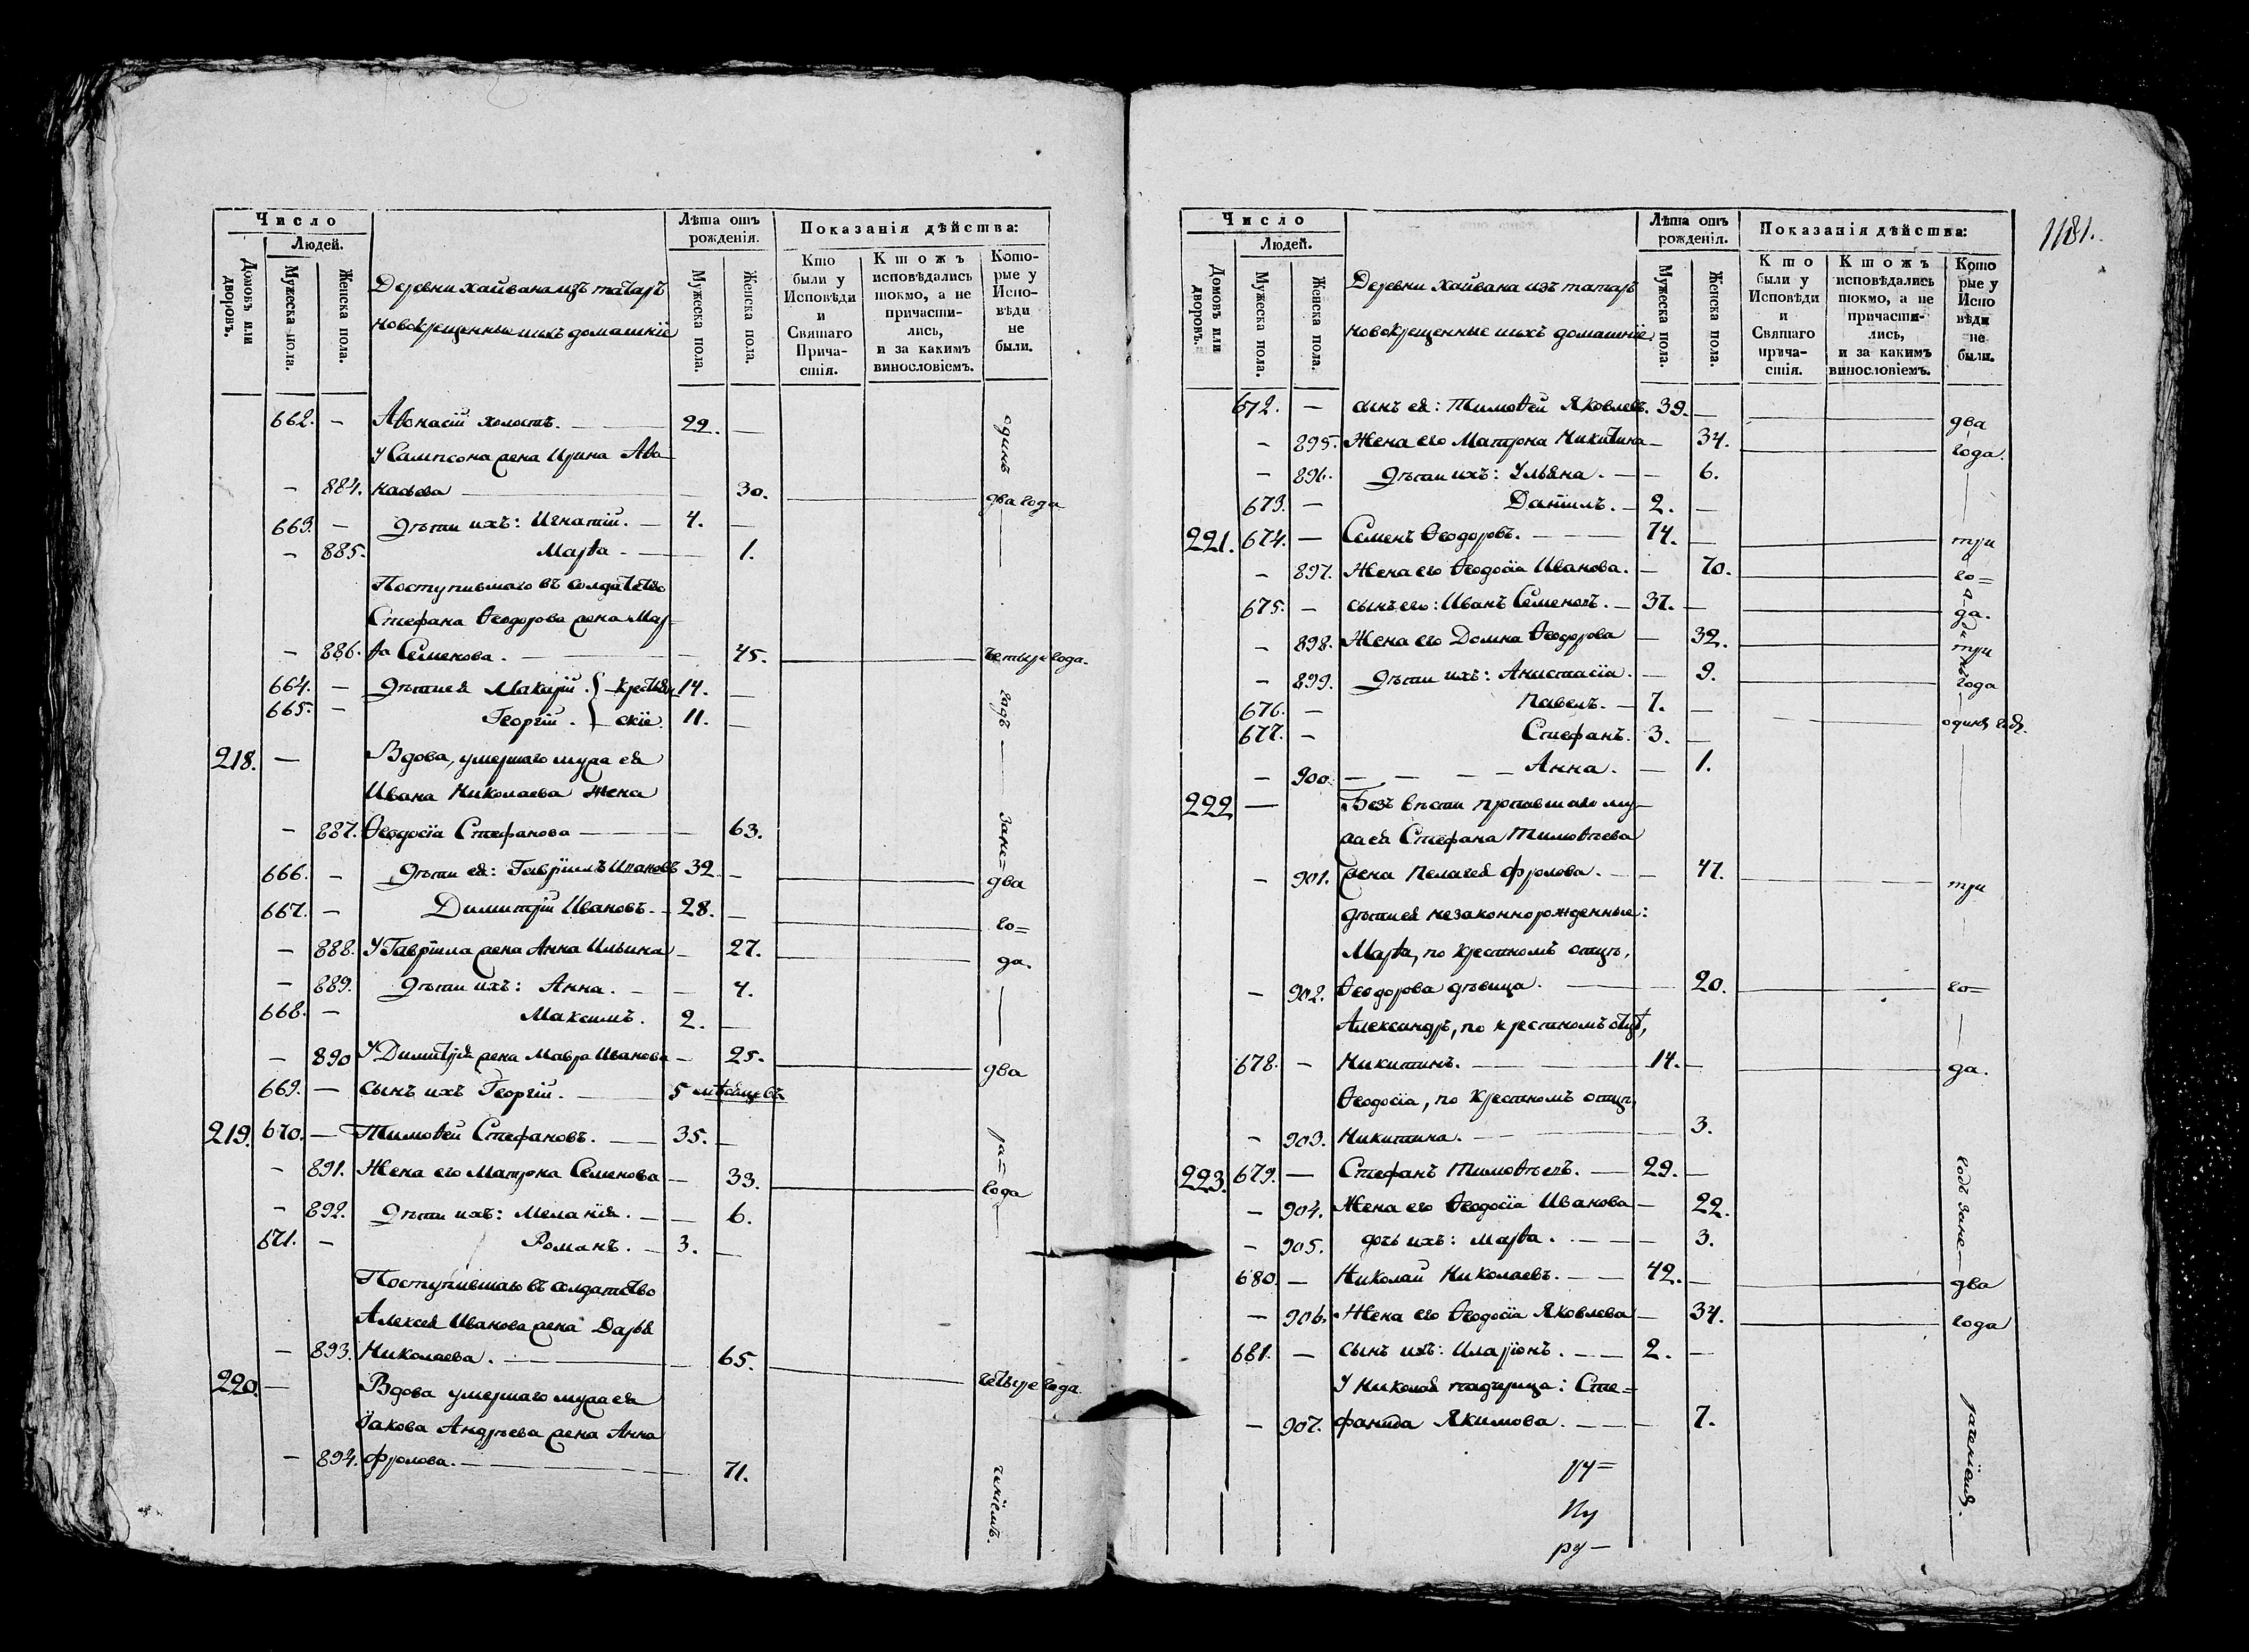 Число
Людей.
Домовъ или дворовъ.
Мужеска пола.
Женска пола.
Деревни хайвана изъ татаръ
новокрещенные ихъ домашніе
Лѣта отъ рожденія.
Мужеска пола.
Женска пола.
Показанія дѣйства:
Кто были у Исповѣди и Святаго Прича-стія.
Ктожъ исповѣдались токмо, а не причасти-лись, и за какимъ винословіемъ.
Кото-рые у Испо-вѣди не были.
662. — Аѳонасій холостъ. — 29. —
одинъ
У Сампсона жена Ирина Аѳа-
— 884. насьева — — 30. — два года
663. — дѣти ихъ: Игнатій. — 4. —
— 885. Марѳа — — 1.
Поступившаго въ солдатство
Стефана Ѳеодорова жена Мар-
— 886. ѳа Семенова. — — 45. — четыре года.
664. — дѣти ея Макарій. } крестьян 14. —
665. — Георгій. } скіе 11. —
годъ
218. — Вдова, умершаго мужа ея
Ивана Николаева жена
— 887. Ѳеодосіа Стефанова — — 63.
зане=
666. — дѣти ея: Гавріилъ Ивановъ 32 — два
667. — Димитрій Ивановъ. — 28. — го=
— 888. У Гавріила жена Анна Ильина — 27. — да.
— 889. дѣти ихъ: Анна. — — 4.
668. — Максимъ. 2. —
— 890 У Димитрія жена Мавра Иванова — 25. — два
669. — сынъ ихъ Георгій. — 5 мѣсяцевъ
219. 670. — Тимоѳей Стефановъ. — 35. —
— 891. Жена его Матрона Семенова — 33. — года
— 892. дѣти ихъ: Меланія. — — 6.
671. — Романъ. — 3. —
Поступившаго въ солдатство
Алексея Иванова жена Дарья
— 893. Николаева. — — 65. — четыре года
220. — Вдова умершаго мужа ея
Іакова Андреева жена Анна
— 894. Фролова. — — 71.
1181.
Число
Людей.
Домовъ или дворовъ.
Мужеска пола.
Женска пола.
Деревни хайвана изъ татаръ
новокрещенные ихъ домашніе.
Лѣта отъ рожденія.
Мужеска пола.
Женска пола.
Показанія дѣйства:
Кто были у Исповѣди и Святаго прича-стія.
Ктожъ исповѣдались токмо, а не причасти-лись, и за какимъ винословіемъ.
Кото рые у Испо вѣди не были.
672. — сынъ ея: Тимоѳей Яковлевъ. 39. — два
— 895. Жена его Матрона Никитина — 34. — года.
— 896. дѣти ихъ: Ульяна. — — 6.
673. — Даніилъ. — 2. —
221. 674. — Семенъ Ѳеодоровъ. — 74. — три
— 897. Жена его Ѳеодосіа Иванова. — 70. — го=
675. — сынъ его: Иванъ Семеновъ. — 37. — да.
— 898. Жена его Домна Ѳеодорова — 32. — три
— 899. дѣти ихъ: Анистасіа. — 9. — года
676. — Павелъ. — 7. — одинъ годъ.
677. — Стефанъ. 3. —
— 900. — Анна. — 1.
222 — Безъ вѣсти пропавшаго му-
жа ея Стефана Тимоѳеева
— 901. жена Пелагея Фролова. — — 47. — три
дѣти ея незаконнорожденные:
Марѳа, по крестномъ отцѣ,
— 902. Ѳеодорова дѣвица. — — 20. — го=
Александръ, по крестномъ отцѣ,
678. — Никитинъ. — 14. — да.
Ѳеодосіа, по крестномъ отцѣ,
— 903. Никитина. — — 3.
223. 679. — Стефанъ Тимоѳеевъ. — 29. —
— 904. Жена его Ѳеодосіа Иванова — 22.
— 905. дочь ихъ: Марѳа. — — 3.
680. — Николай Николаевъ. — 42. — два
— 906. Жена его Ѳеодосіа Яковлева — 34. — года
681. — сынъ ихъ: Иларіонъ. — 2. —
У Николая падчерица: Сте=
— 907. фанида Якимова. — — 7.